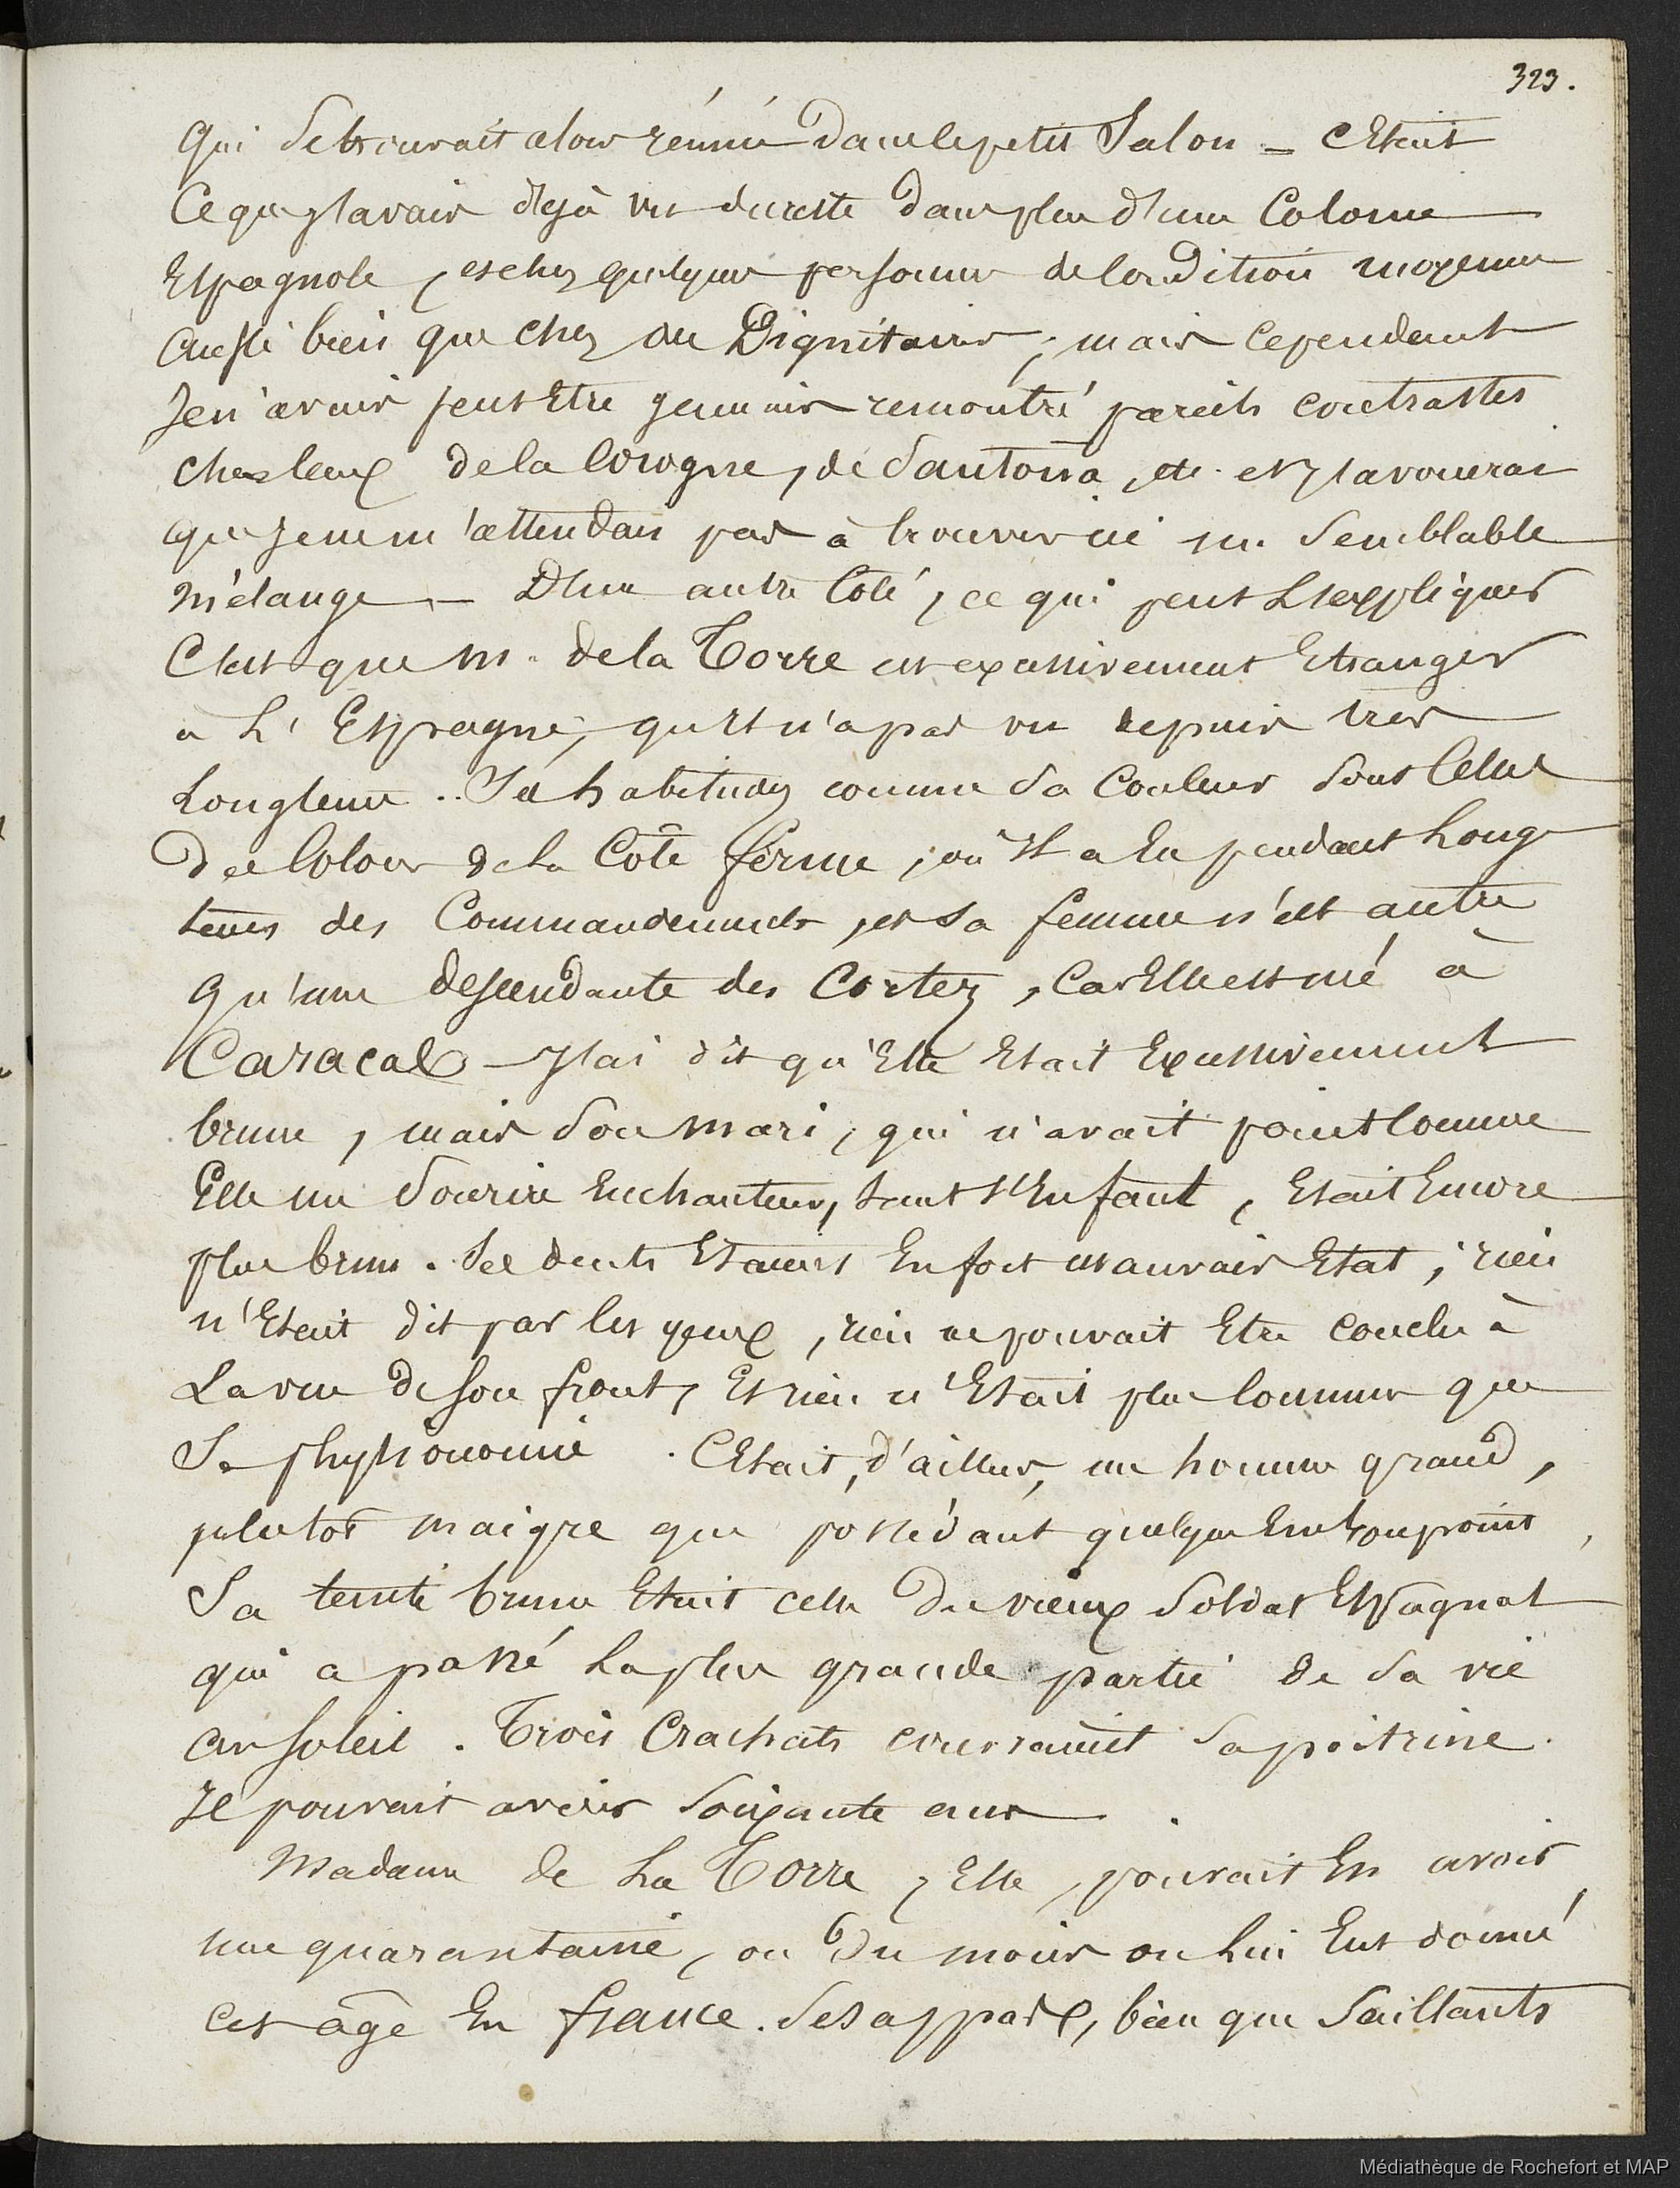 323.
Qui se trouvait alors réunie dans le petit Salon = C'Etait
Ce que j'avais déjà vu du reste dans plus d'une Colonie
Espagnole, et chez quelques personnes de Condition moyenne
Aussi bien que chez des Dignitaires ; mais cependant
Je n'avais peut Etre jamais remontré pareils contrastes
Chez Ceux de la Corogne, de Santona, etc. et j'avouerai
que Je ne m'attendais pas à trouver ici un Semblable
Mélange — D'un autre Côté, ce qui peut s'expliquer
C'est que M. de la Torre est excessivement Etranger
à L'Espagne, qu'Il n'a pas vu depuis très
Longtems .. Ses habitudes comme sa Couleur sont Celles
des Colons de la Côte ferme, où Il a Eu pendant Long
tems des Commandements, et sa femme n'est autre
qu'une descendante des Cortez, Car Elle est née à
Caracas — J'ai dit qu'Elle Etait Excessivement
brune, mais son Mari, qui n'avait point Comme
Elle un Sourire Enchanteur, tant s'En faut, Etait Encore
plus brun. Ses dents Etaient En fort mauvais Etat ; rien
n'Etait dit par les yeux, rien ne pouvait Etre conclu à
La vue de son front, Et rien n'Etait plus Commun que
Sa physionomie . C'Etait, d'ailleurs, un homme grand,
plutôt maigre que possédant quelque Embonpoint,
Sa teinte brune Etait celle du vieux Soldat Espagnol
qui a passé La plus grande partie de Sa vie
au Soleil. Trois Crachats couvraient Sa poitrine.
Il pouvait avoir Soixante ans.
Madame de La Torre, Elle, pouvait En avoir
une quarantaine, ou du moins on Lui Eut donné
Cet âge En france. Ses appas, bien que Saillants
Médiathèque de Rochefort et MAP